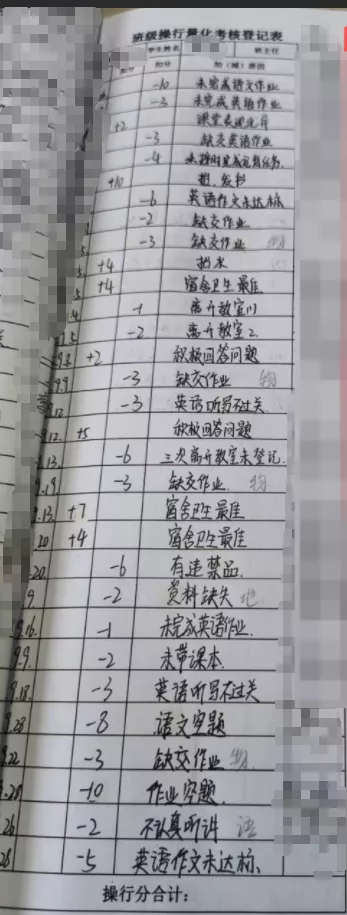 班级操行量化考核登记表
学生姓名 班主任
加分 扣分 加（减）原因
-10 未完成语文作业
-3 未完成英语作业
+2 课堂表现优异
-3 缺交英语作业
-4 未按时完成文言任务
+10
-6 英语作文未达标
-2 缺交作业
-3 缺交作业 物
+4
+4 宿舍卫生最佳
-1 离开教室1
-2 离开教室2.
+2 积极回答问题
9.9 -3 缺交作业 物
-3 英语听写不过关
9.12. +5 积极回答问题
9.13. -6 三次离开教室未登记.
9.19. -3 缺交作业. 物
9.13. +7 宿舍卫生最佳
.20 +4 宿舍卫生最佳
.20. -6 有违禁品.
9. -2 资料缺失 地
9.16. -1 未完成英语作业.
9.9. -2 未带课本.
9.18. -3 英语听写不过关
9.28 -8 语文空题
9.22 -3 缺交作业 物.
.28 -10 作业空题.
26 -2 不认真听讲 语
28 -5 英语作文未达标、
操行分合计：